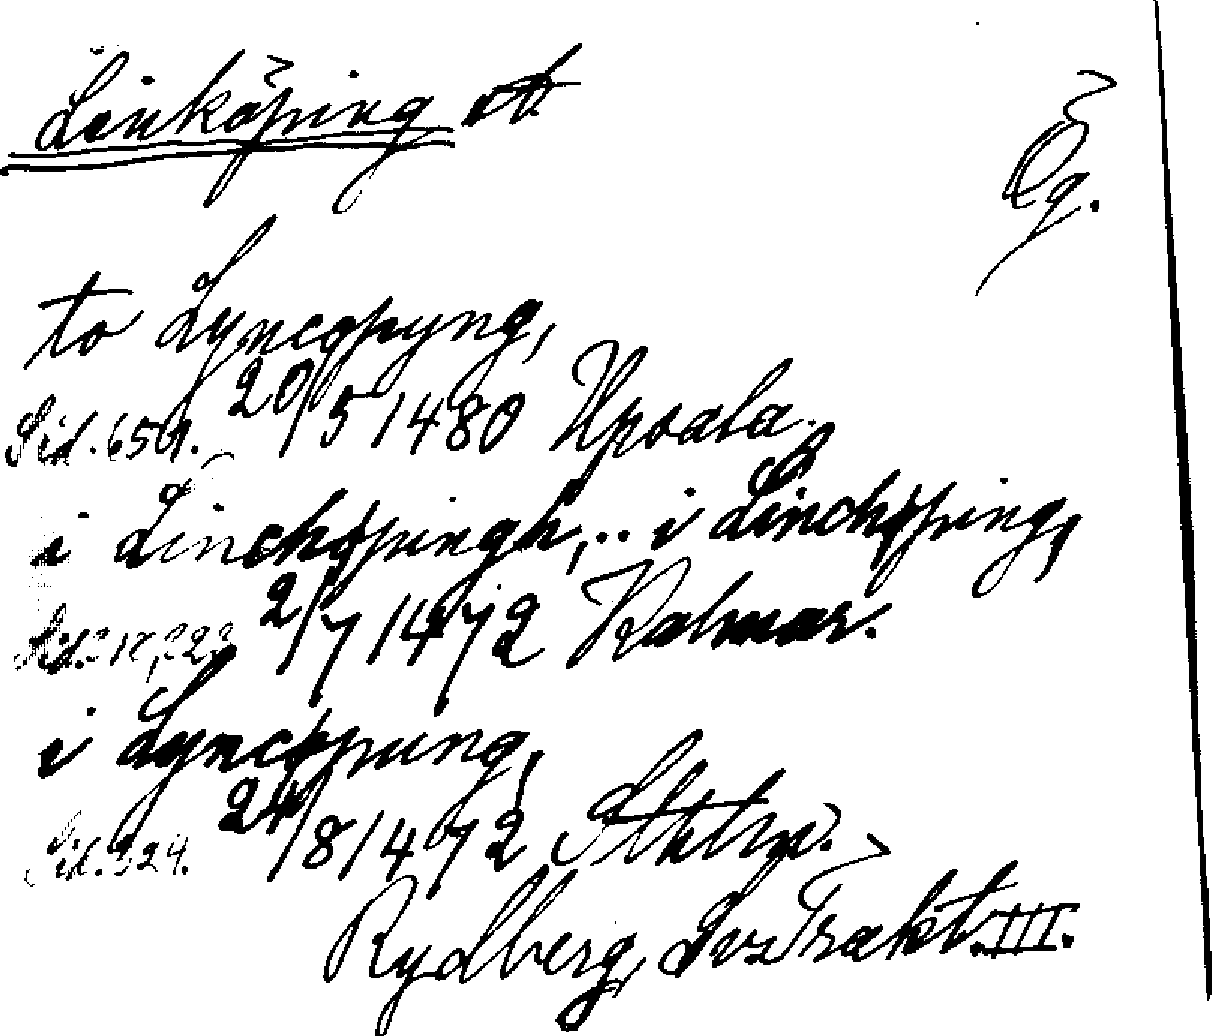 Linköping st
Ög.
to Lyncopyng,
Sid. 651. 20/5 1480 Upsala.
i Linchöpingh, .. i Linchöping,
Sid. 2/7 1472 Kalmar.
i Lyncöpung,
Sid. 324. 24/8 1472 Sthlm.
Rydberg, Sv. Trakt. III.